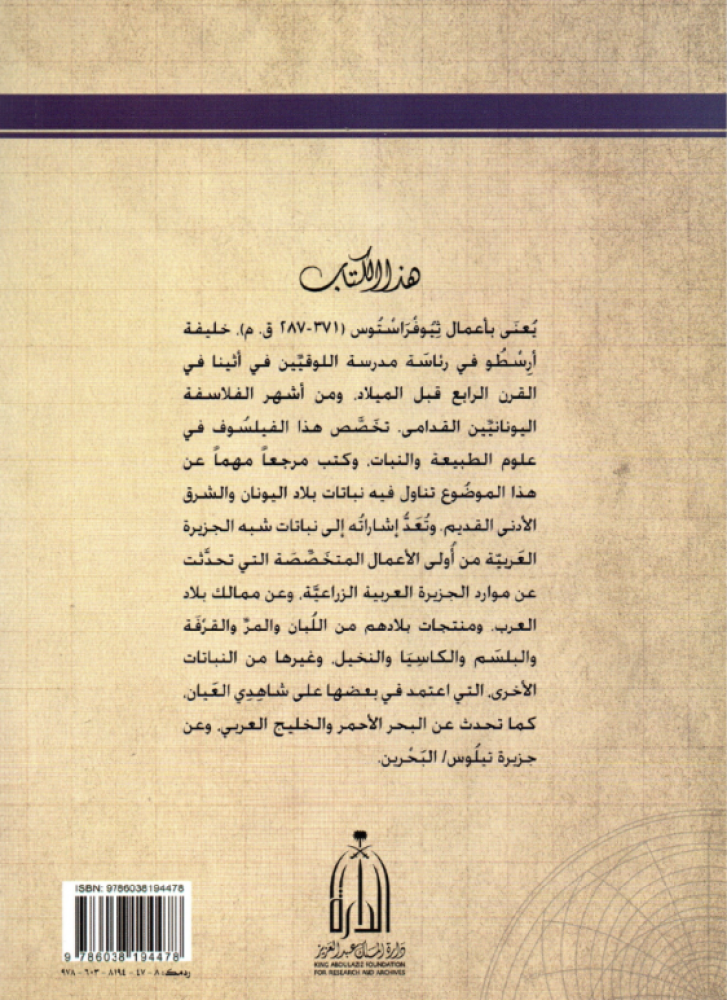 هذا الكتاب
يُعنَى بأعمال ثِيُوفْرَاسْتُوس (٣٧١-٢٨٧ ق. م)، خليفة
أرِسْطُو في رئاسَة مدرسة اللوقيِّين في أثينا في
القرن الرابع قبل الميلاد، ومن أشهر الفلاسفة
اليونانيِّين القدامى. تخَصَّص هذا الفيلسُوف في
علوم الطبيعة والنبات، وكتب مرجعاً مهماً عن
هذا الموضُوع تناول فيه نباتات بلاد اليونان والشرق
الأدنى القديم. وتُعَدُّ إشاراتُه إلى نباتات شبه الجزيرة
العَربيّة من أُولى الأعمال المتخَصِّصَة التي تحدَّثت
عن موارد الجزيرة العربية الزراعيَّة، وعن ممالك بلاد
العرب، ومنتجات بلادهم من اللُبان والمرِّ والقرْفَة
والبلسَم والكاسِيَا والنخيل، وغيرها من النباتات
الأخرى، التي اعتمد في بعضها على شاهِدِي العَيان،
كما تحدث عن البحر الأحمر والخليج العربي، وعن
جزيرة تيلُوس/ البَحْرين.
الدارة
دارة الملك عبدالعزيز
KING ABDULAZIZ FOUNDATION
FOR RESEARCH AND ARCHIVES
ISBN: 9786038194478
9 786038 194478
ردمك: ٨ - ٤٧ - ٨١٩٤ - ٦٠٣ - ٩٧٨